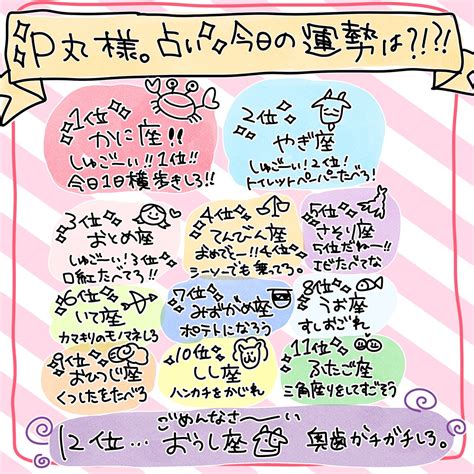 P丸様。占い 今日の運勢は?!?!
1位
かに座!!
しゅごーい!!1位!!
今日1日横歩きしろ!!
2位
やぎ座
しゅごーい!2位!
トイレットペーパーたべろ!
3位
おとめ座
しゅごーい!3位
口紅たべてろ!!
4位
てんびん座
おめでとー!!4位
シーソーでも乗ってろ。
5位
さそり座
5位だねー!!
エビたべてな
6位
いて座
カマキリのモノマネしろ
7位
みずがめ座
ポテトになろう
8位
うお座
すしおごれ
9位
おひつじ座
くつしたをたべろ
10位
しし座
ハンカチをかじれ
11位
ふたご座
三角座りをしてすごそう
ごめんなさーい
12位…おうし座 奥歯ガチガチしろ。